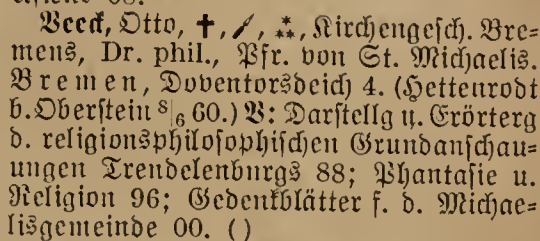 Veeck, Otto, ✝, 🖋, ⁂, Kirchengesch. Bre-
mens, Dr. phil., Pfr. von St. Michaelis.
Bremen, Doventorsdeich 4. (Hettenrodt
b. Oberstein 8|6 60.) V: Darstellg u. Erörterg
d. religionsphilosophischen Grundanschau-
ungen Trendelenburgs 88; Phantasie u.
Religion 96; Gedenkblätter f. d. Michae-
lisgemeinde 00. ()